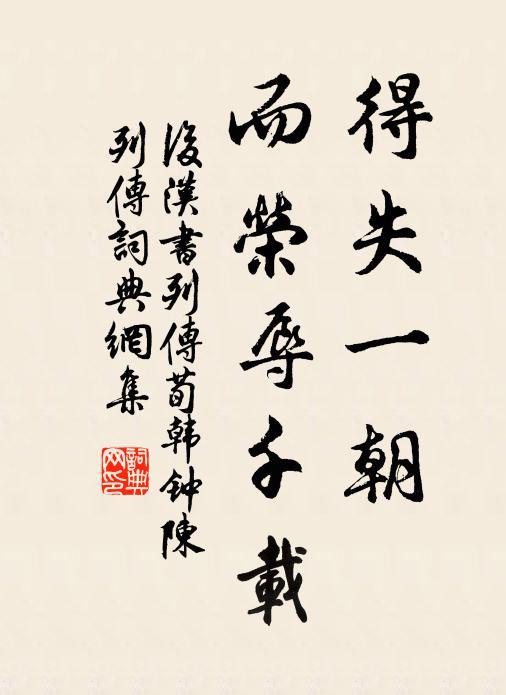 得失一朝
而榮辱千載
後漢書列傳荀韩钟陳
列傳詞典網集
詞典
网印